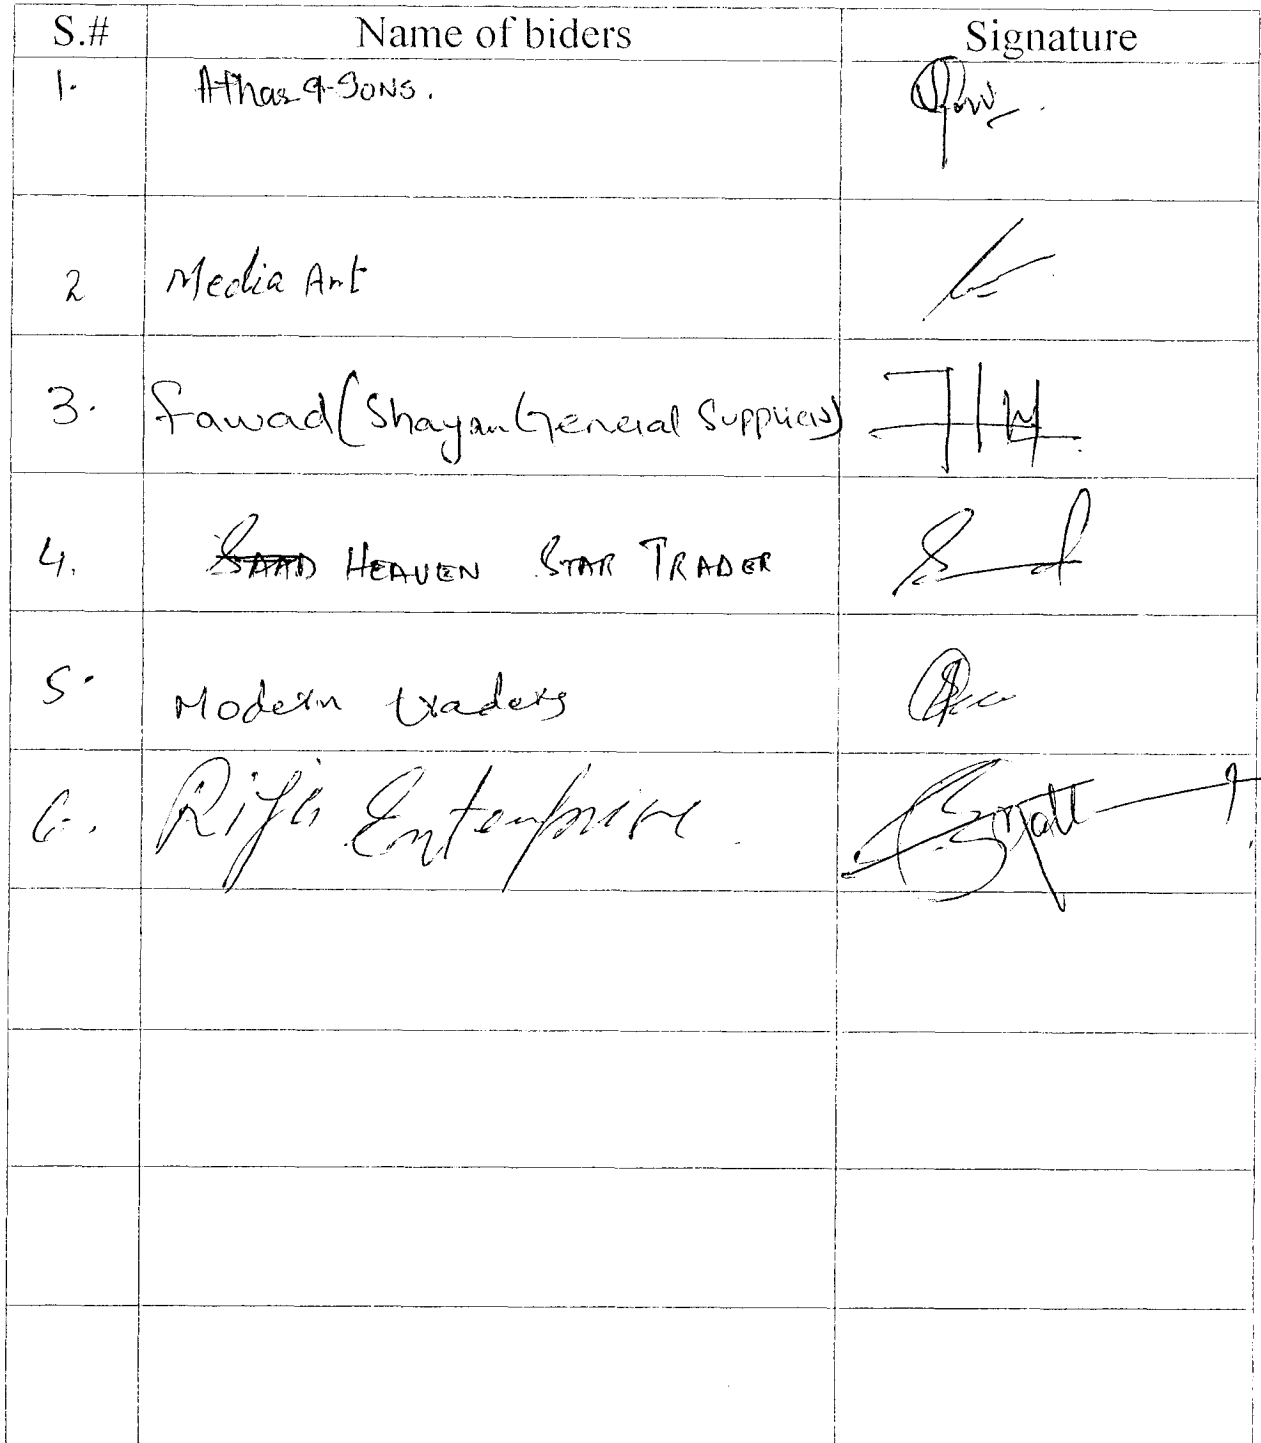 S.# Name of biders Signature
1. Athar & Sons.
2 Media Art
3. Fawad (Shayan General Suppliers)
4. SAAD HEAVEN STAR TRADER
5. Modern traders
6. Enterprise